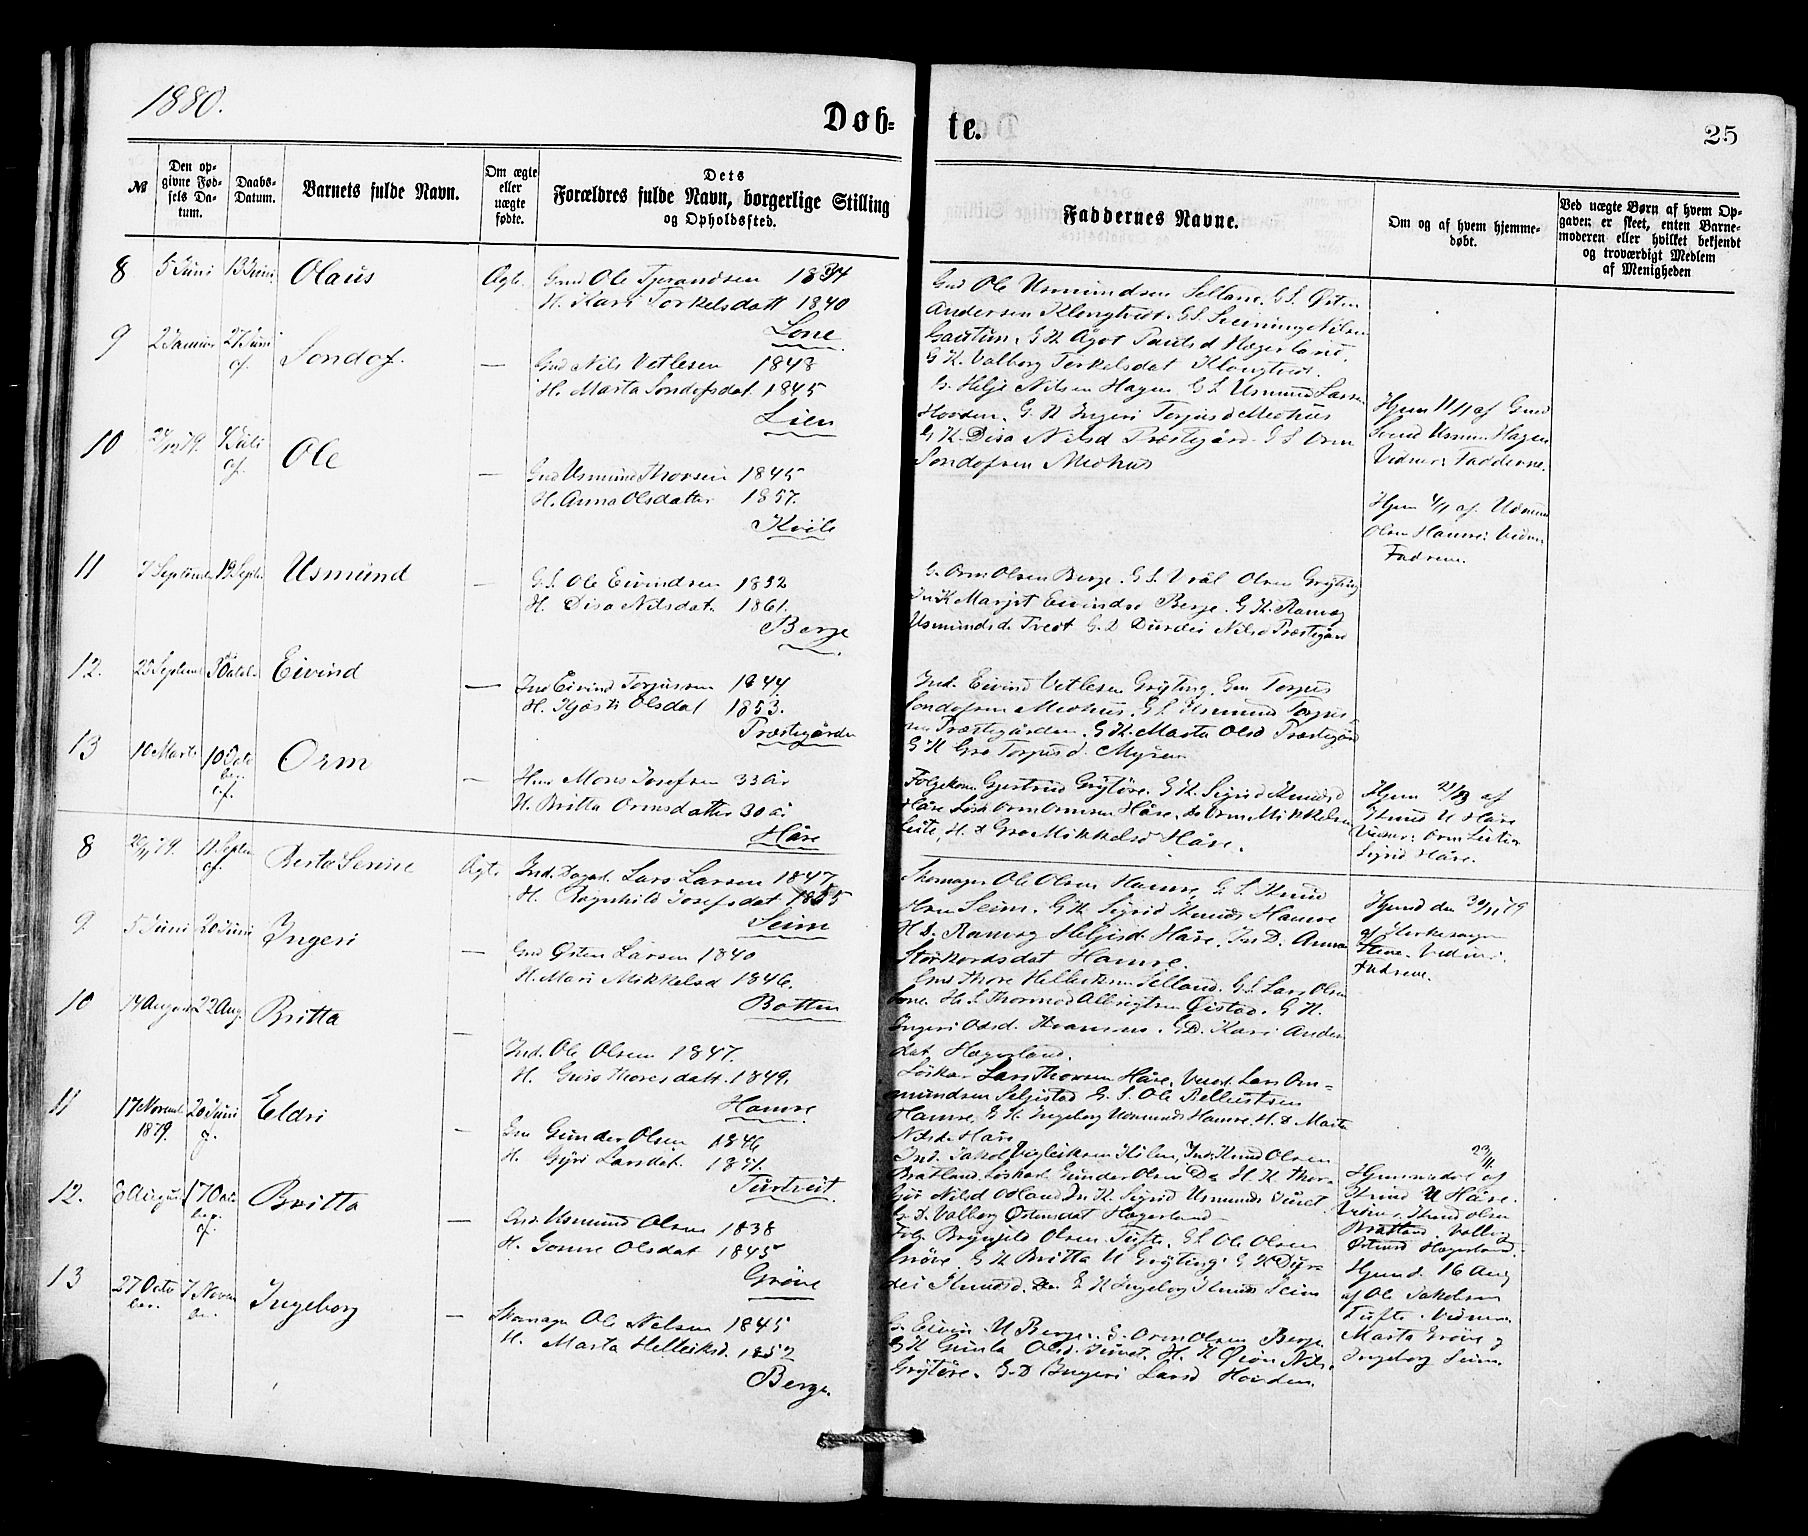 1880.
Døb-
te.
25
№
Den opgivne Fødsels Datum.
Daabs-Datum.
Barnets fulde Navn.
Om ægte eller uægte fødte.
Dets Forældres fulde Navn, borgerlige Stilling og Opholdssted.
Faddernes Navne.
Om og af hvem hjemmedøbt.
Ved uægte Børn af hvem Opgaven er skeet, enten Barnemoderen eller hvilket bekjendt og troværdigt Medlem af Menigheden
8 5 Juni 13 Juni Olaus Ægte Gmd Ole 1834
H. Kari Torkelsdatt 1840
Lone
Gmd Ole Usmundsen Selland. G.S. Østen
Andersen Klongtveit. G.S.
Gautun. G K Ågot Paulsd Hægerland.
G K. Valborg Torkelsdat Klongtveit.
9 2 Januar 27 Juni Sondof. — Gmd Nils Vetlesen 1843
H. Marta Sondofsdat 1845
Lien
G. Helje Nilsen Hagen G S Usmund Larsen
Hovden. G. K Ingeri Torjusd Meohus
G K. Disa Nilsd Præstegård. G S Orm
Sondofsen Meohus
Hjem 11/1 af Gmd
Svend Usmun Hagen
Vidner: Fadderne.
10 Juli Ole — Gmd Usmund Thorsen 1845
H. Anna Olsdatter 1857.
Kvile
Hjem 4/1 af Usmund
Olsen Hamre: Vidn.
Fadrene.
11 7 September 19 Septe. Usmund — G.S. Ole Eivindsen 1852
H. Disa Nilsdat. 1861.
Berge
G. Orm Olsen Berge. G S Olsen Gryting
K Marjit Eivindsd Berge. G K. Ramog
Usmundsd. Tveit G. D Durdei Nilsd Præstegård
12. 25 Septemb Eivind — Ind Eivind Torjussen 1844
H. Kjøsti Olsdat 1853.
Præstegården
Ind. Eivind Vetlesen Gryting. Gm Torjus
Sondofsen Meohus. G S Usmund Torjus-
sen Præstegården. G K. Marta Olsd Præstegård
G K Gro Torjusd. Myren
13 10 Marts 10 Octo ber. cf. Orm — Hmd Mons Josefsen 33 år
H. Britta Ormsdatter 30 år
Håre
Gjertrud Grytøre. G K. Sigrid Knudsd
Håre Løsk Orm Ormsen Håre, do Orm Mikkelsen
Leite, H. d Gro Mikkelsd Håre.
Hjem 21/3 af
Knud U Håre
Vidner: Orm Leite
Sigrid Håre.
8 11 Septem cf. Berto Serine Ægte Ind. Lars Larsen 1847
H. Ragnhild Josefsdat 1855
Seim
Skomager Ole Olsen Hamre, G. S. Knud
Seim. G K Sigrid Knuds Hamre
H d. Ramog Heljesd. Håre. In D. Anna
Storkordsdat Hamre.
Hjemd den 30/11 79
af Kirkesanger
Steve. Vidner:
Fadrene.
9 5 Juni 20 Juni Ingeri — Gmd Østen Larsen 1840
H. Mari Mikkelsd 1846.
Botten
Gmd Thore Helleiksen Selland. G.S. Lars Olsen
Lone. H. S. Thormod Albrigtsen Øistad. G K.
Ingeri Odsd. G D. Kari Anders
dat Hægerland.
10 14 August 22 Aug. Britta — Ind. Ole Olsen 1847.
H. Guro Thoresdatt. 1849.
Hamre
Løskar Lars Thorsen Håre. Lars Orm-
mundsen G. S. Ole
Hamre. G K. Ingeborg Usmunds Hamre. H. d Marta
Nilsd. Håre
11 17 Novemb 1879. 20 Juni cf. Eldri — Gm Gunder Olsen 1846
H. Gyri Larsdat. 1851.
Turtveit
Ind. Jakob Vigleiksen Knud Olsen
Bratland. Løskar Gunder Olsen Do H. K Thor-
Nilsd Odland K. Sigrid Usmunds Juvet
G. D. Valborg Østensdat Hægerland
23/11
Hjemmedøbt af
Knud U Håre.
Vidner. Knud Olsen
Bratland Valborg
Østensd Hægerland.
12. 8 August 17 Octo ber. cf. Britta — Ind. Usmund Olsen 1838
H. Gonne Olsdat 1845
Grøve
Brynjeld Olsen Tufte. G S. Ole Olsen
Grøve. G K Britta U Gryting. G K Dur-
dei Knudsd. Do G K Ingeborg Knuds Seim
Hjemd. 16 Aug
af Ole Jakobsen
Tufte. Vidner.
Marta Grøve og
Ingeborg Seim.
13 27 Octo ber. 7 Novem ber. Ingeborg — Skomager Ole Nilsen 1845
H. Marta Helleiksd. 1852
Berge
G. Eivin U Berge. G. Orm Olsen Berge
G K Gunla Olsd. Juvet. H. K Nils.
Grytøre. G. D Ingeri Larsd Hovden.